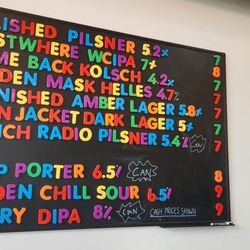 LISHED PILSNER 5.2% 7
STWHERE WCIPA 7+ 8
ME BACK KOLSCH 4.2% 7
DEN MASK HELLES 4.7% 7
NISHED AMBER LAGER 5.8+ 7
N JACKET DARK LAGER 5+ 7
NCH RADIO PILSNER 5.4% CAN 7
P PORTER 6.5% CANS 8
DEN CHILL SOUR 6.5% 9
RY DIPA 8% CAN CASH PRICES SHOWN 9